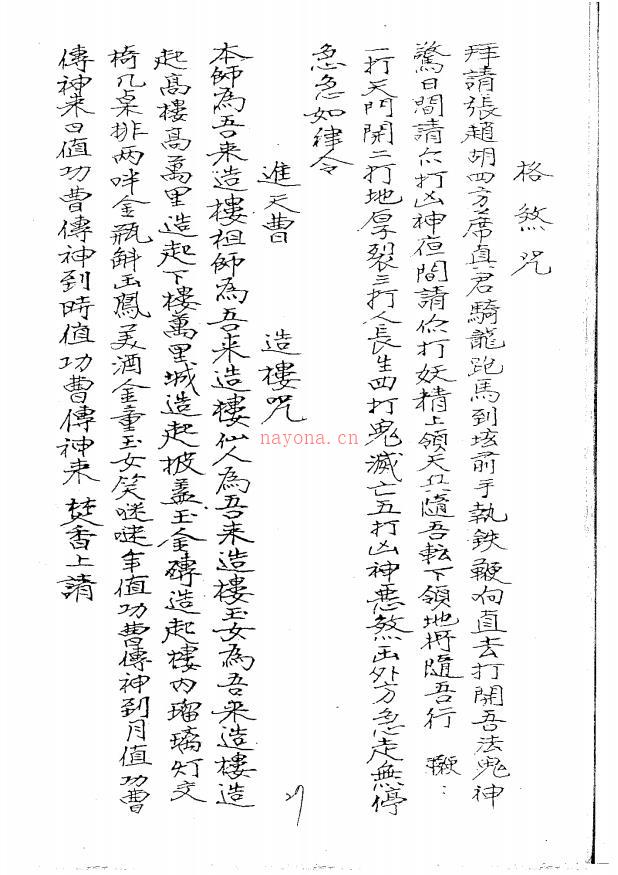 格煞咒
拜請張趙胡四方席真君騎龍跑馬到垓前手執鉄鞭向直去打開吾法鬼神
驚日間請你打凶神夜間請你打妖精上領天兵隨吾転下領地將隨吾行 鞭：
一打天門開二打地厚裂三打人長生四打鬼滅亡五打凶神惡煞出外方急走無停
急急如律令
進天曹 造樓咒
本師為吾来造樓祖師為吾来造樓仙人為吾来造樓玉女為吾来造樓造
起高樓高萬里造起下樓萬里城造起披盖玉金磚造起樓內瑠璃灯交
椅几桌排两咩金瓶斟玉鳳美酒金童玉女笑咪咪年值功曹傳神到月值功曹
傳神来日值功曹傳神到時值功曹傳神来 焚香上請
nayona.cn